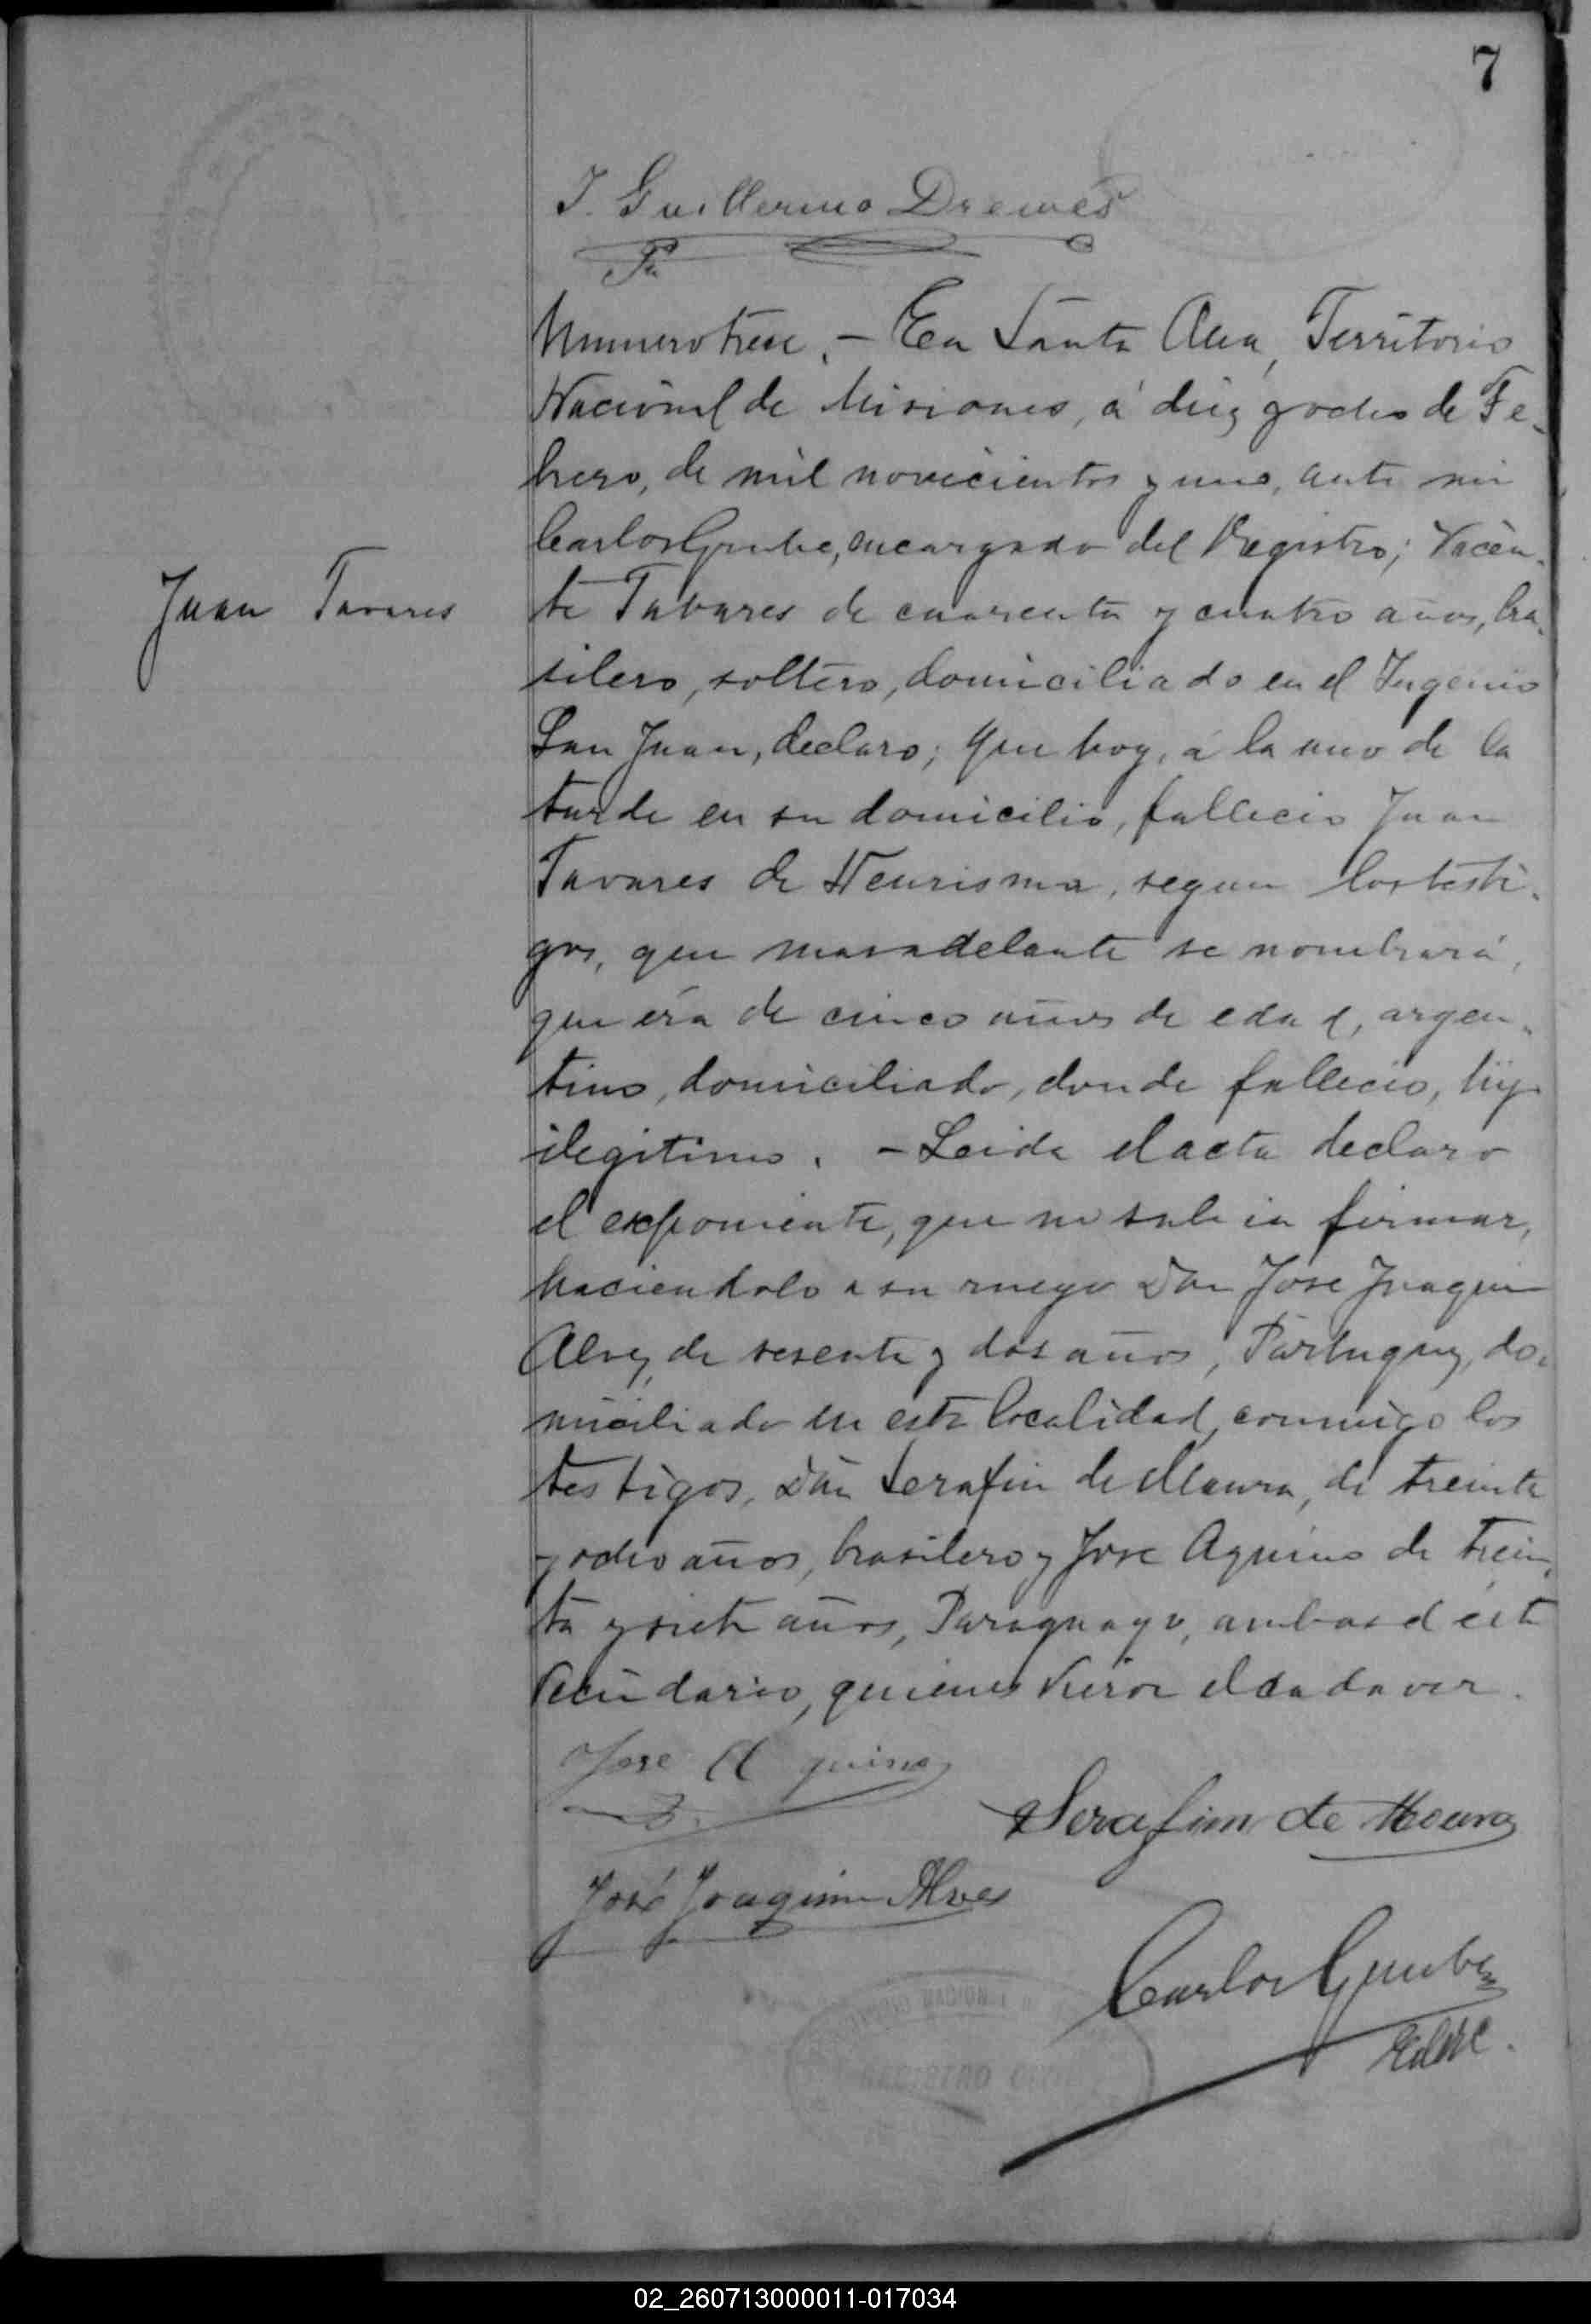 7
J. Guillermo Drewes
Numero trese. - En Santa Ana, Territorio
Nacional de Misiones, á diez y ocho de Fe-
brero, de mil novecientos y uno, ante mi
Carlos Grube, encargado del Registro; Vicen-
Juan Tavares
te Tavares de cuarenta y cuatro años, bra-
silero, soltero, domiciliado en el Ingenio
San Juan, declaro; Que hoy, á la una de la
tarde en su domicilio, fallecio Juan
Tavares de Neurisma, segun los testi-
gos, que mas adelante se nombrará,
que era de cinco años de edad, argen-
tino, domiciliado, donde fallecio, hijo
ilegitimo. - Leida el acta declaro
el exponiente, que no sabia firmar,
haciendolo a su ruego Don Jose Joaquin
Alvez, de sesenta y dos años, Portuguez, do-
miciliado en esta localidad, conmigo los
testigos, Don Serafin de Maura, de treinta
y ocho años, brasilero y Jose Aquino de trein-
ta y siete años, Paraguayo, ambos d este
vecindario, quienes vieron el cadaver.
Jose Aquino
Serafim de Moura
José Joaquim Alves
Carlos Grube
REGISTRO CIVIL
02_260713000011-017034